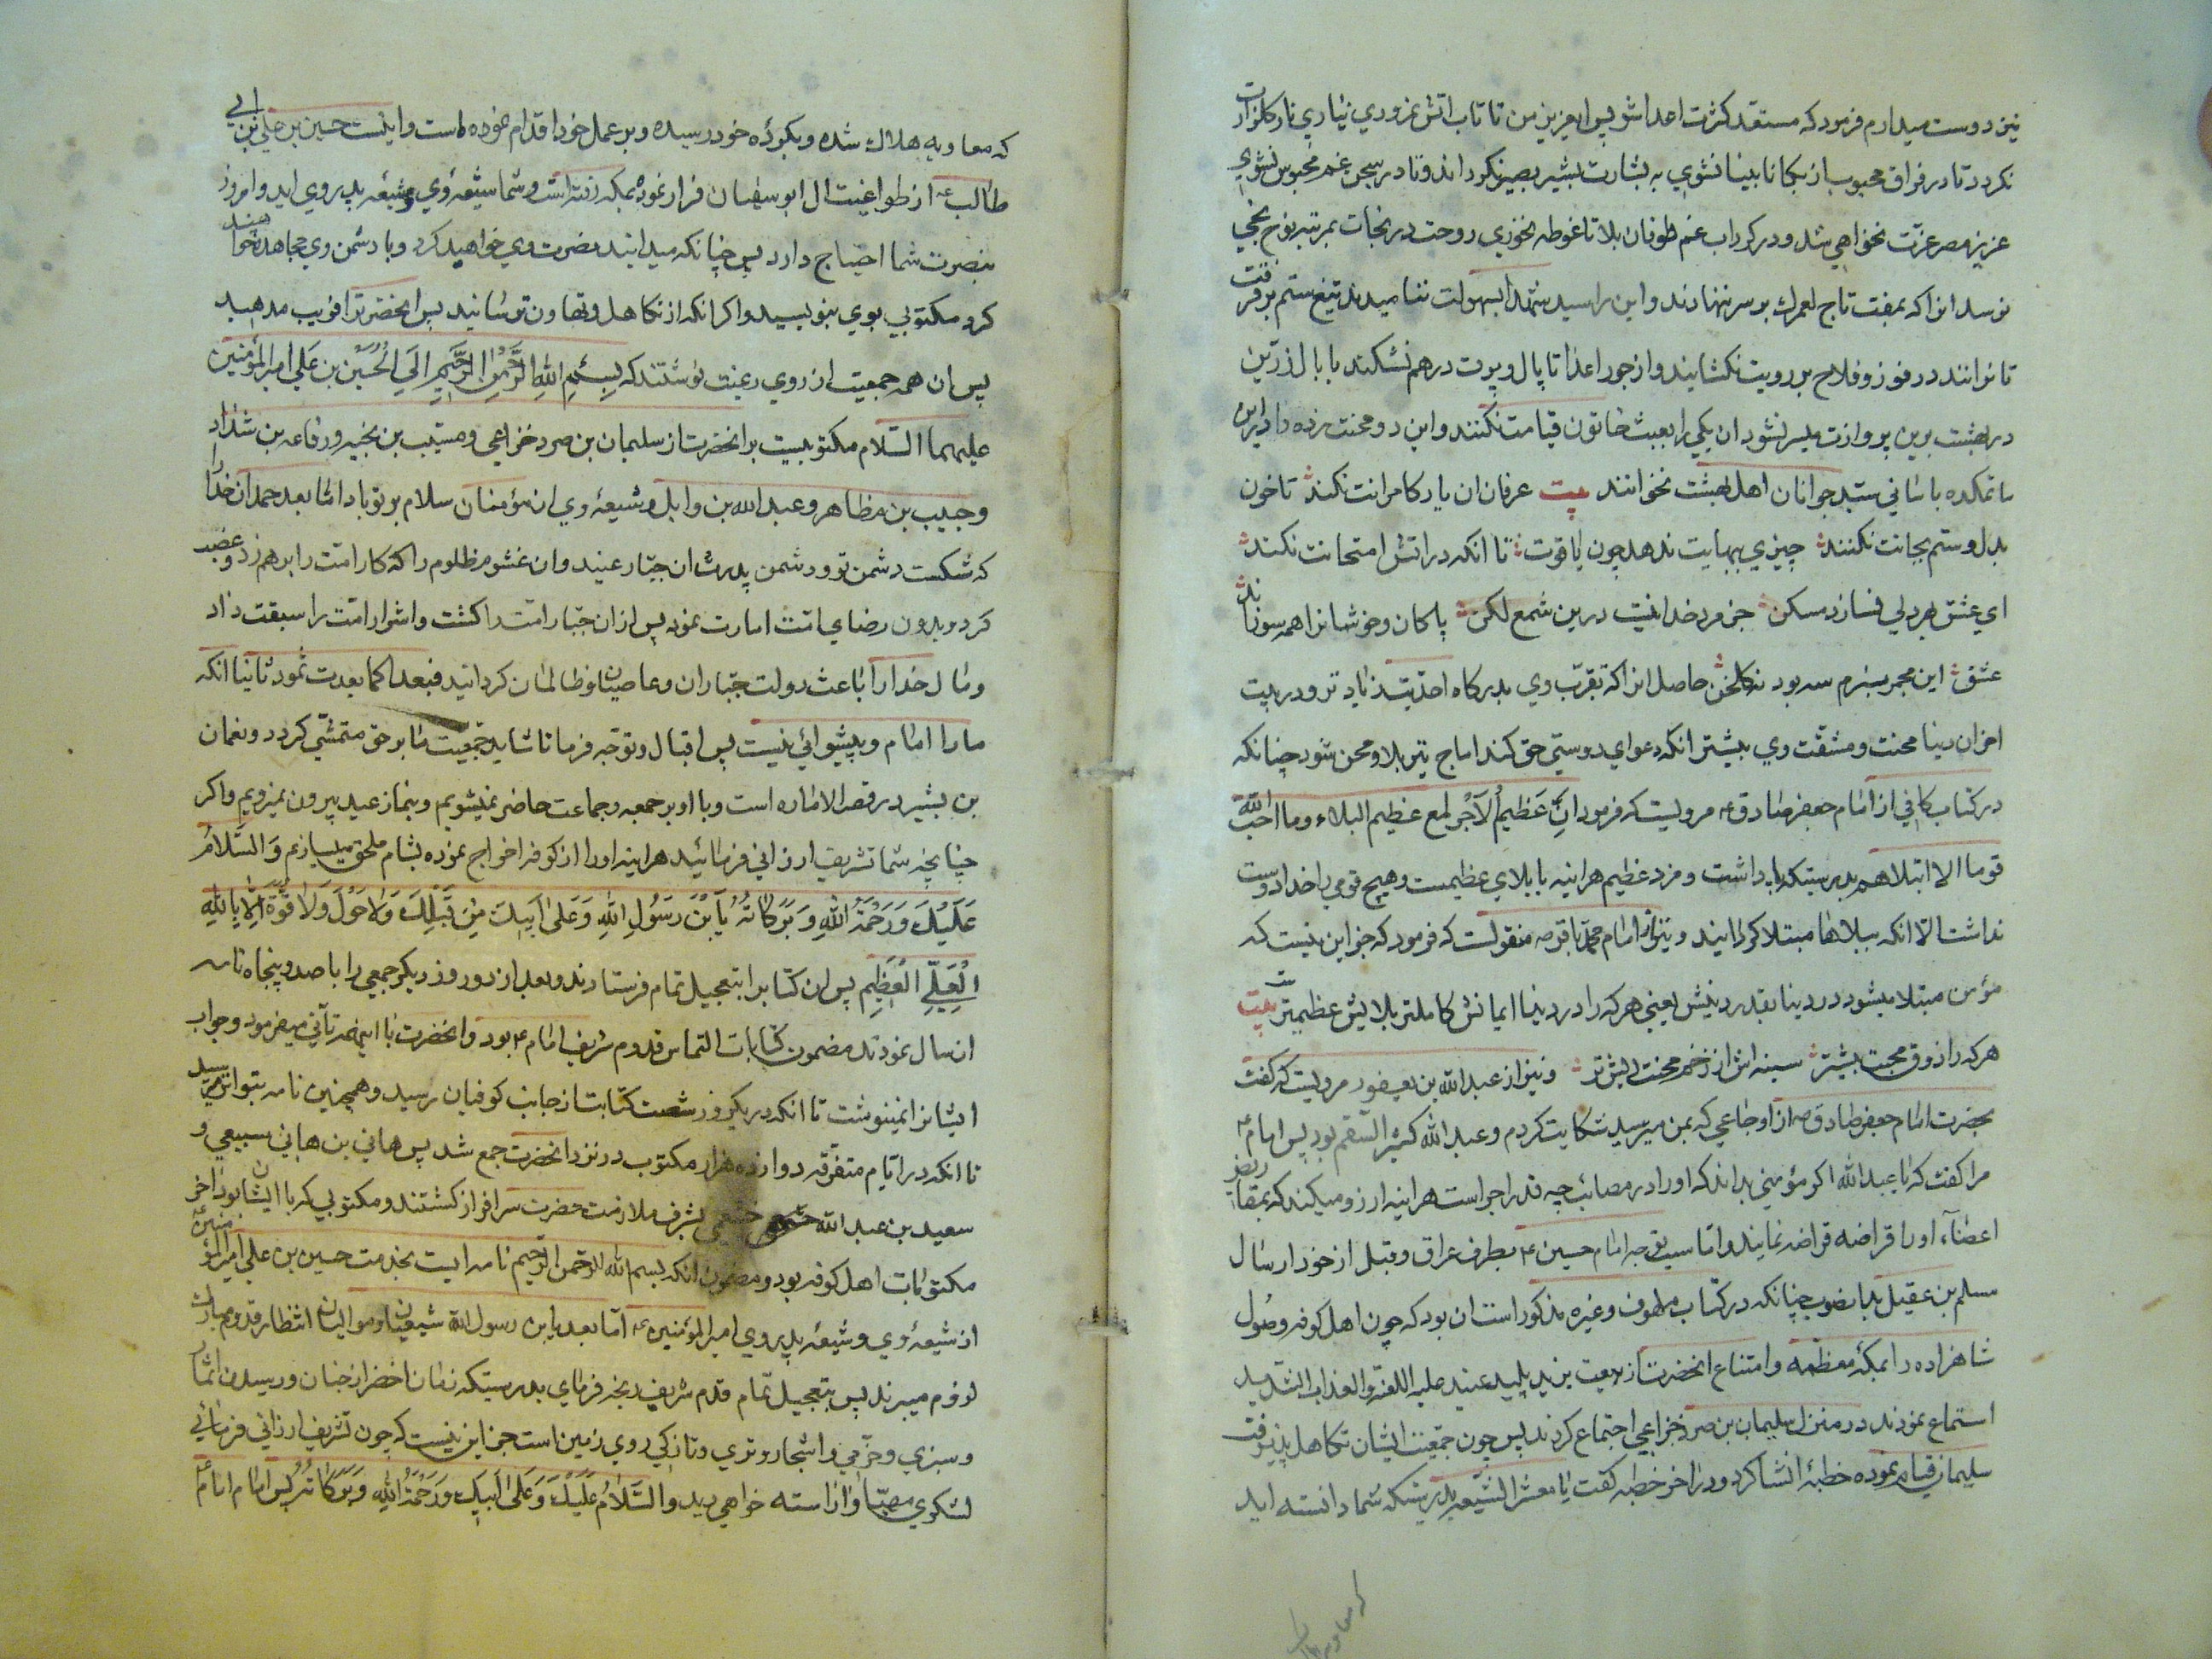 نیز دوست میدارم فرمود که مستعد کثرت اعدا شو پس ایعزیز من تا تاب اتش نمرودی نیاری نار کلزارت
نکردد تا در فراق محبوب از بکا نابینا نشوی به بشارت بشیر بصیر نکرداند و تا در سجن غم محبوس نشوی
عزیز مصر عزت نخواهی شد و در کرداب غم طوفان بلا تا غوطه نخوری روحت در نجات بمرتبه نوح نجی
نرسد انرا که بمفت تاج لعمرك بر سر ننهادند و این را سید شهدا بسهولت ننامیدند تیغ ستم بر فرقت
تا نرانند در فوز و فلاح بر رویت نکشایند و از جور اعدا تا پال و پرت درهم نشکند با بال زرین
در بهشت برین پروازت میسر نشود ان یکی را بعبث خاتون قیامت نکنند و این دو محنت زده را در این
ماتمکده باسانی سید جوانان اهل بهشت نخوانند بیت عرفان ان یار کامرانت نکند تا خون
بدل و ستم بجانت نکنند چیزی ببهایت ندهد چون یاقوت تا انکه در اتش امتحانت نکند
ای عشق بهر دلی فسازد مسکن جز مرد خدا نیت درین شمع لکن پاکان و خوشانرا همه سوزاند
عشق این مجمر بزم سه بود نه کلخن حاصل انرا که تقرب وی بدرکاه احدیت زیاد تر و در بیت
احزان دنیا محنت و مشقت وی بیشتر انکه دعوای دوستی حق کند اماج تیر بلا و محن شود چنانکه
در کتاب کافی از امام جعفر صادق ع مرویست که فرمود ان عَظیمُ الاَجْر لمع عظیم البلاء وما احب الله
قوما الا ابتلاهم بدرستیکه پاداشت و مزد عظیم هراینه با بلای عظیمست و هیچ قومی را خدا دوست
نداشت الا انکه ببلاها مبتلا کردانیند و نیز از امام محمد باقر ص منقولست که فرمود که جز این نیست که
مؤمن مبتلا میشود در دنیا بقدر دینش یعنی هر که را در دنیا ایمانش کاملتر بلایش عظیمتر بیت
هر که را ذوق محبت بیشتر سینه اش از زخم محنت ریش تر و نیز از عبد الله بن یعفور مرویست که کفت
بحضرت امام جعفر صادق ص از اوجاعی که بمن میرسید شکایت کردم و عبد الله کثیر السقم بود پس امام ع
مرا کفت که یا عبد الله اکر مؤمنی بداند که اورا در مصائب چه قدر اجر است هراینه ارزو میکند که بمقراض
اعضاء اورا قراضه قراضه نمایند و اما سبب توجه امام حسین ع بطرف عراق و قبل از خود ارسال
مسلم بن عقیل بدانصوب چنانکه در کتاب ملهوف و غیره مذکور است ان بود که چون اهل کوفه وصول
شاهزاده را بمکهٔ معظمه و امتناع انحضرت از بیعت یزید پلید عنید علیه اللعنة والعذاب الشدید
استماع نمودند در منزل سلیمان بن صرد خزاعی اجتماع کردند پس چون جمعیت ایشان تکاهل پذیرفت
سلیمان قیام نموده خطبهٔ انشا کرد و در اخر خطبه کفت یا معشر الشیعه بدرستیکه شما دانسته اید
که معاویه هلاك
که معاویه هلاك شده و بکردهٔ خود رسیده و بر عمل خود اقدام نموده است و اینست حسین بن علی بن ابی
طالب ع از طواغیت ال ابو سفیان فرار نموده بمکه رفته است و شما شیعهٔ وی و شیعهٔ پدر وی اید و امروز
بنصرت شما احتیاج دارد پس چنانکه میدانید نصرت وی خواهید کرد و با دشمن وی مجاهده خواهید
کرد مکتوبی بوی بنویسید و اکر انکه از تکاهل و تهاون ترسانید پس انحضرترا فریب مدهید
پس ان همه جمعیت از روی رغبت نوشتند که بِسْمِ اللهِ الرَّحْمٰنِ الرَّحِیمِ اِلَی الْحُسَیْن بن عَلی امیر المؤمنین
علیهما السّلام مکتوبیست بر انحضرت از سلیمان بن صرد خزاعی و مسیب بن نجبه و رفاعه بن شداد
و حبیب بن مظاهر و عبد الله بن وابل و شیعهٔ وی از مؤمنان سلام بر تو باد اما بعد حمد ان خدا را
که شکست دشمن تو و دشمن پدرت ان جبار عنید و ان غشوم ظلوم را که کار امت را برهم زد و غضب
کرد و بدون رضای امت امارت نمود پس ازان جبار امت را کشت و اشرار امت را سبقت داد
و مال خدارا باعث دولت جباران و عاصیان و ظالمان کردانید فبعدا کما بعدت ثمود ثانیا انکه
ما را امام و پیشوائی نیست پس اقبال و توجه فرما تا شاید جمعیت ما بر حق متمشی کردد و نعمان
بن بشیر در قصر الاماره است و با او بر جمعه و جماعت حاضر نمیشویم و بنماز عید بیرون نمیرویم و اکر
چنانچه شما تشریف ارزانی فرمائید هراینه اورا از کوفه اخراج نموده بشام ملحق میسازیم وَالسَّلامُ
عَلَیْكَ وَرَحْمَةُ اللهِ وَبَرَکاتُهُ یَا بْنَ رَسُولِ اللهِ وَعَلی اَبیكَ مِنْ قَبْلِكَ وَلاحَوْلَ وَلا قُوَّةَ اِلّا بِاللهِ
الْعَلِيِّ الْعَظِیمِ پس ان کتابرا بتعجیل تمام فرستادند و بعد از دو روز دیکر جمعی را با صد و پنجاه نامه
ارسال نمودند مضمون کتابات التماس قدوم شریف امام ع بود و انحضرت با اینهمه تأنی میفرمود و جواب
ایشانرا نمینوشت تا انکه در یکروز ششصت کتابت از جانب کوفیان رسید و همچنین نامه بتواتر میرسید
تا انکه در ایام متفرقه دوازده هزار مکتوب در نزد انحضرت جمع شد پس هانی بن هانی سبیعی و
سعید بن عبد الله خثعمی بشرف ملازمت حضرت سرافراز کشتند و مکتوبی که با ایشان بود اخر
مکتوبات اهل کوفه بود و مضمون انکه بسم الله الرحمن الرحیم نامه ایست بخدمت حسین بن علی امیر المؤمنین ع
از شیعهٔ وی و شیعهٔ پدر وی امیر المؤمنین ع اما بعد یابن رسول الله شیعیان و موالیان انتظار قدوم مبارك
لوفرم میبرند پس بتعجیل تمام قدم شریف رنجه فرمای بدرستیکه زمان اخضرار جنان و رسیدن اثمار
و سبزی و خرمی و اشجار و تری و تازکی روی زمین است جز این نیست که چون تشریف ارزانی فرمائی
لشکری مهیا و اراسته خواهی دید والسَّلامُ عَلَیْكَ وَعَلی اَبیكَ وَرَحْمَةُ اللهِ وَبَرَکاتُهُ پس امام انام ع